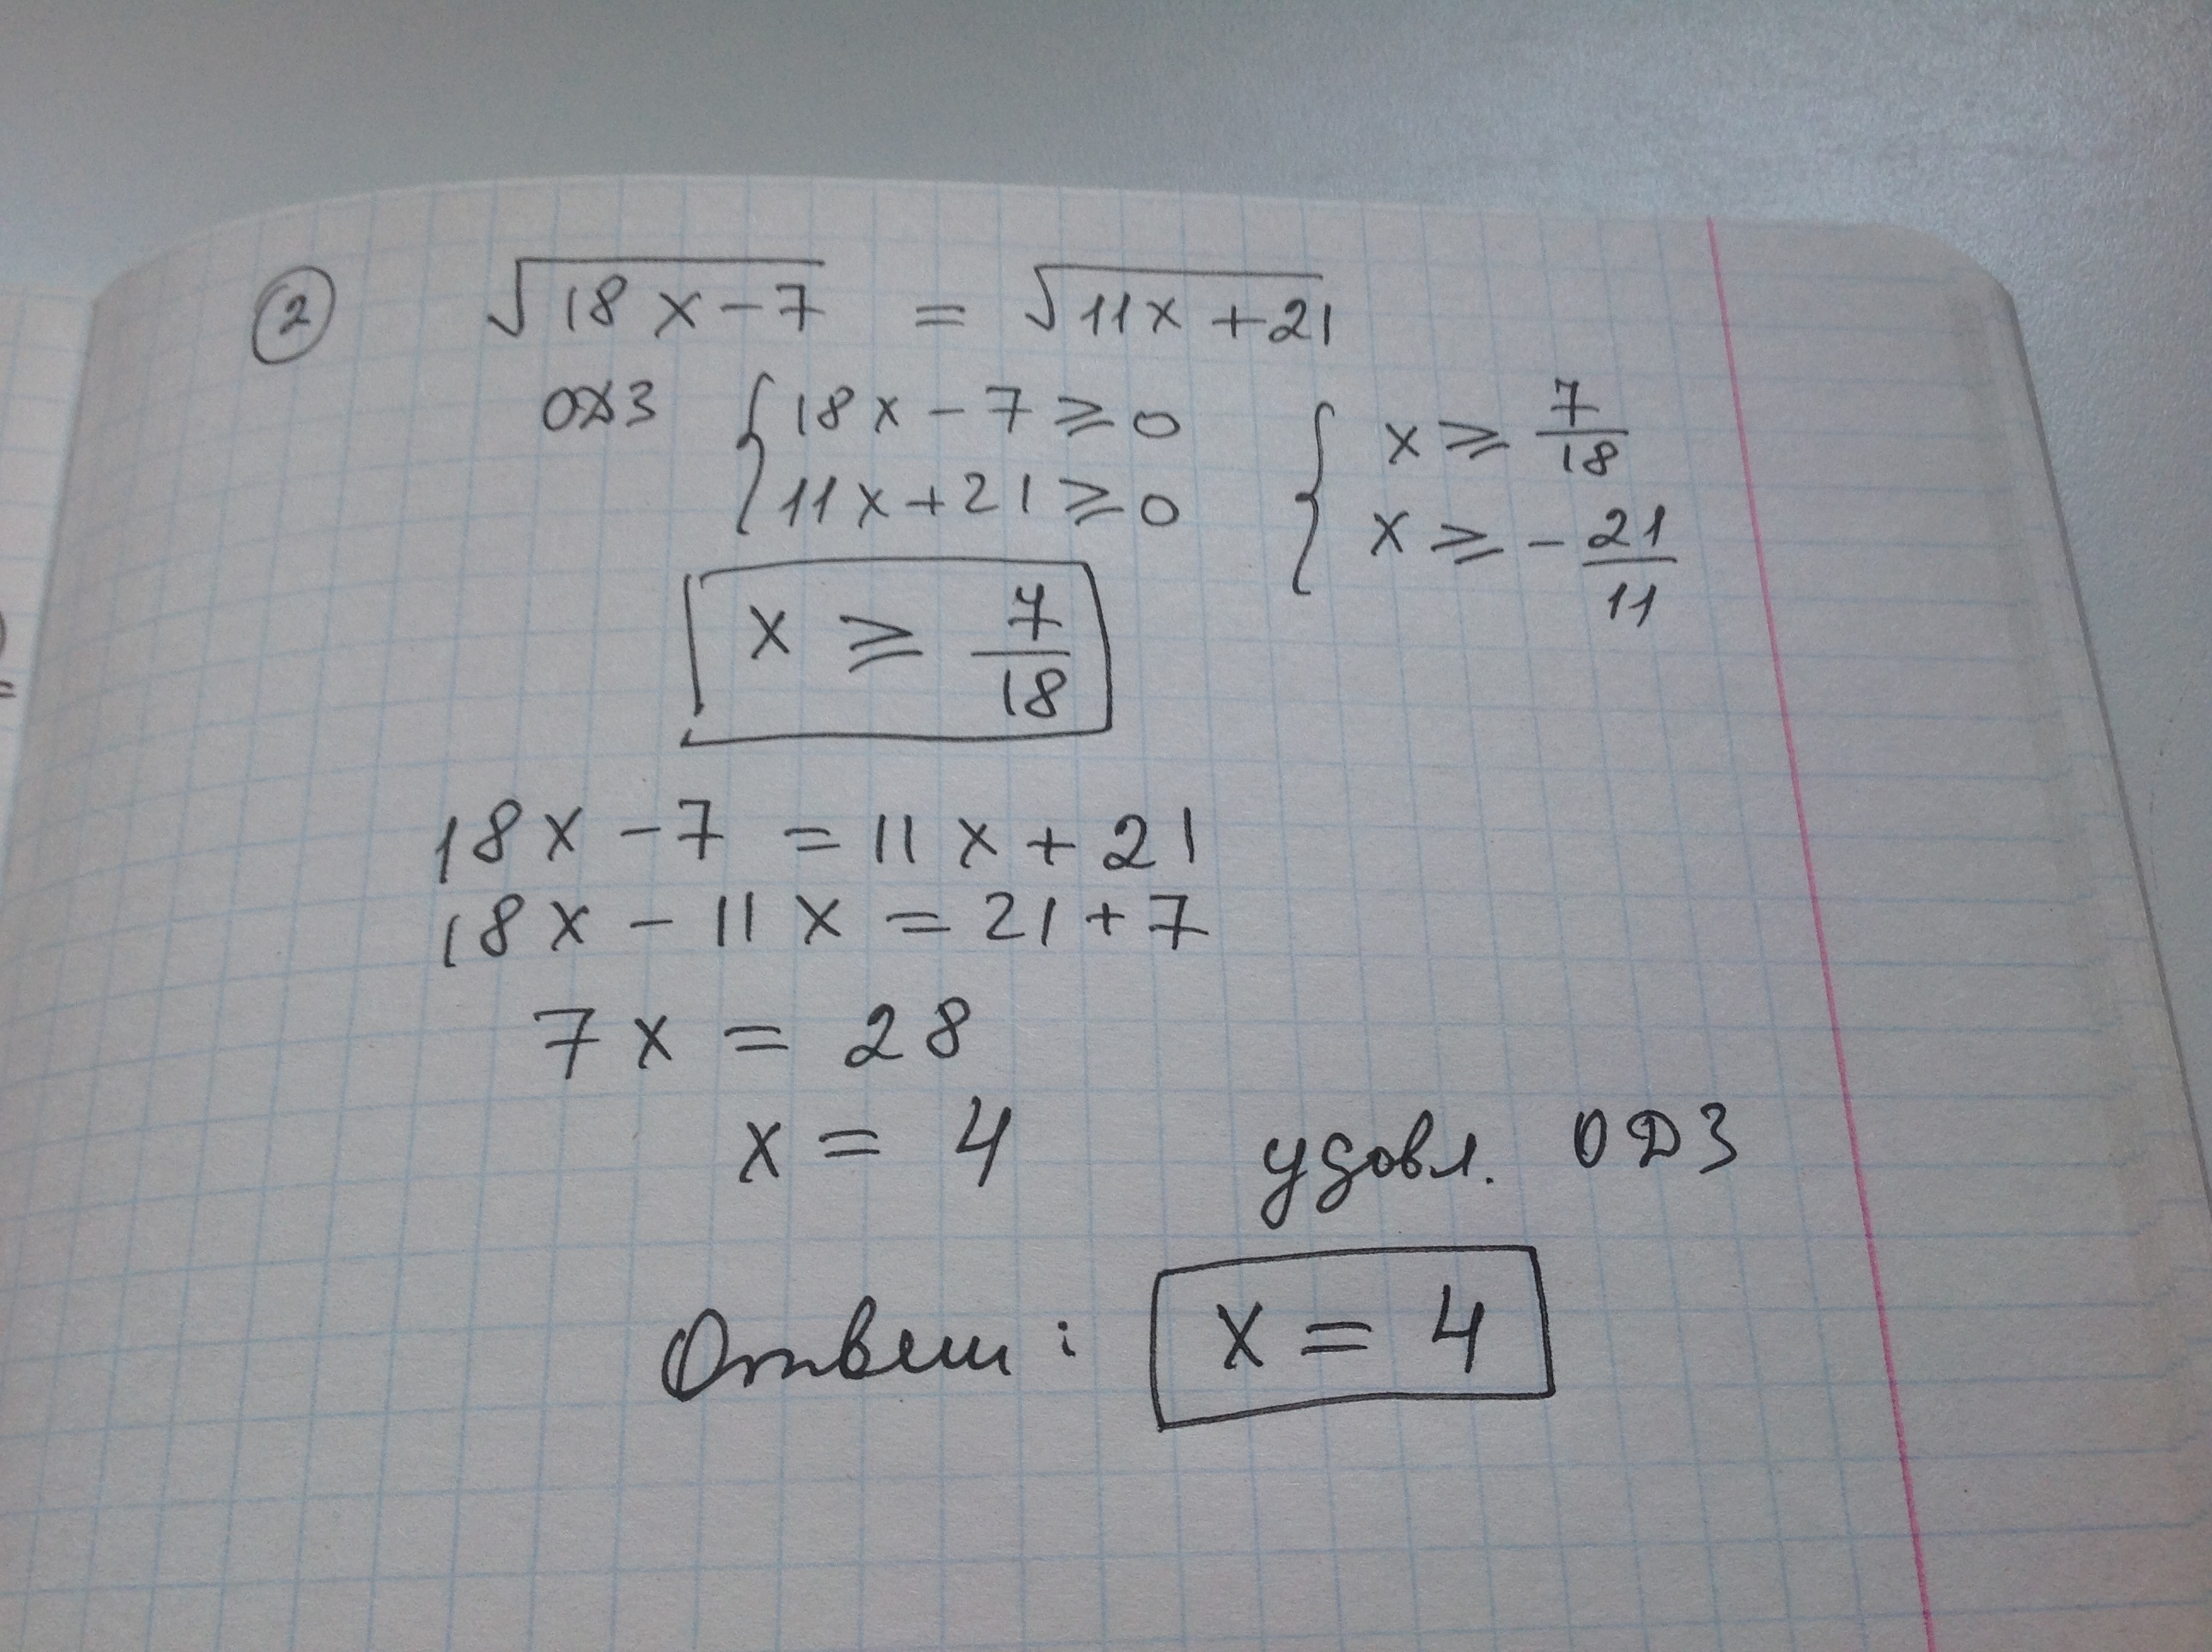 ② √18x-7 = √11x+21
ОДЗ { 18x-7 ≥ 0 { x ≥ 7/18
11x+21 ≥ 0 x ≥ -21/11
x ≥ 7/18
18x-7 = 11x+21
18x-11x = 21+7
7x = 28
x = 4 удовл. ОДЗ
Ответ: x = 4